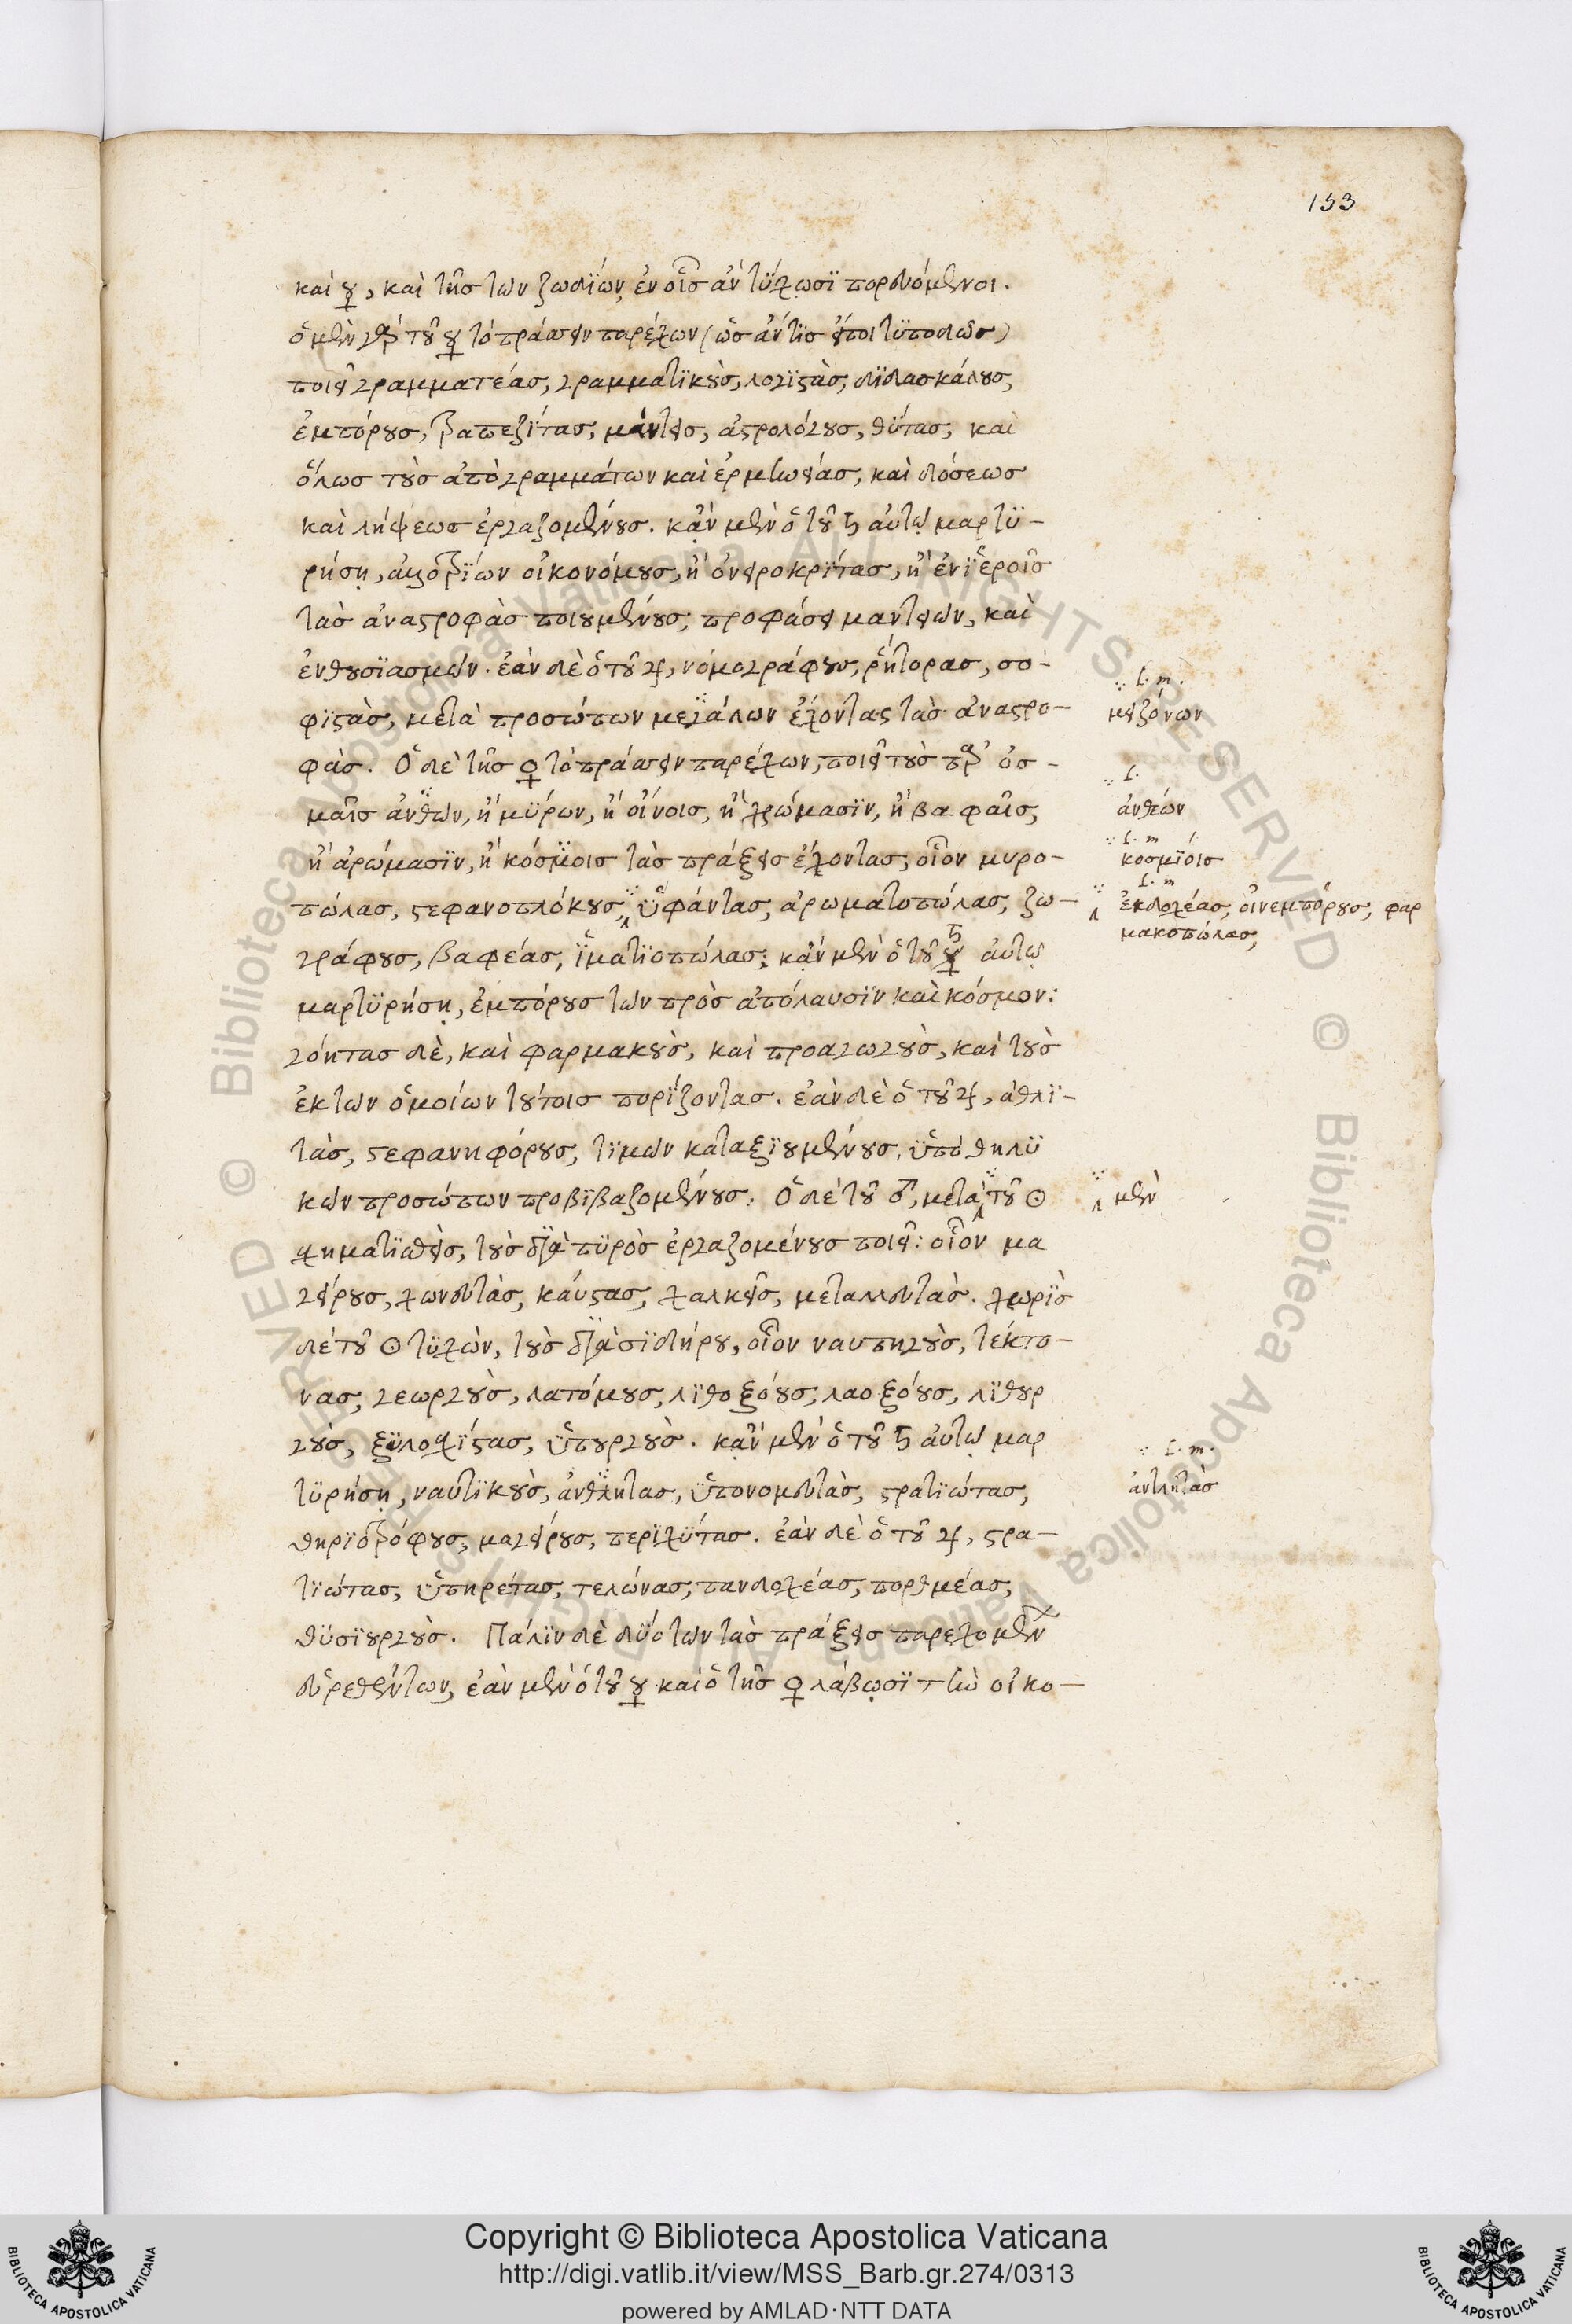 153
καὶ ☿, καὶ τῆς τῶν ζωδίων, ἐν οἷς ἂν τύχωσι πορευόμενοι.
ὁ μὲν γὰρ τοῦ ☿ τὸ πράσσειν παρέχων (ὡς ἄν τις εἴποι τυπωδῶς)
ποιεῖ γραμματέας, γραμματικοὺς, λογιστὰς, διδασκάλους,
ἐμπόρους, τραπεζίτας, μάντεις, ἀστρολόγους, θύτας, καὶ
ὅλως τοὺς ἀπὸ γραμμάτων καὶ ἑρμηνείας, καὶ δόσεως
καὶ λήψεως ἐργαζομένους. κᾂν μὲν ὁ τοῦ ♄ αὐτῷ μαρτυ-
ρήσῃ, ἀλλοτρίων οἰκονόμους, ἢ ὀνειροκρίτας, ἢ ἐν ἱεροῖς
τὰς ἀναστροφὰς ποιουμένους, προφάσει μαντειῶν, καὶ
ἐνθουσιασμῶν. ἐὰν δὲ ὁ τοῦ ♃, νομογράφους, ῥήτορας, σο-
φιστὰς, μετὰ προσώπων μεγάλων ἔχοντας τὰς ἀναστρο-
φάς. Ὁ δὲ τῆς ♀ τὸ πράσσειν παρέχων, ποιεῖ τοὺς παρ' ὀσ-
μαῖς ἀνθῶν, ἢ μύρων, ἢ οἴνοις, ἢ χρώμασιν, ἢ βαφαῖς,
ἢ ἀρώμασιν, ἢ κόσμοις τὰς πράξεις ἔχοντας, οἷον μυρο-
πώλας, στεφανοπλόκους, ὑφάντας, ἀρωματοπώλας, ζω-
γράφους, βαφέας, ἱματιοπώλας; κᾂν μὲν ὁ τοῦ ♄ αὐτῷ
μαρτυρήσῃ, ἐμπόρους τῶν πρὸς ἀπόλαυσιν καὶ κόσμον:
γόητας δὲ, καὶ φαρμακοὺς, καὶ προαγωγοὺς, καὶ τοὺς
ἐκ τῶν ὁμοίων τούτοις πορίζοντας. ἐὰν δὲ ὁ τοῦ ♃, ἀθλι-
τὰς, στεφανηφόρους, τιμῶν καταξιουμένους, ὑπὸ θηλυ
κῶν προσώπων προβιβαζομένους. Ὁ δὲ τοῦ ♂, μετὰ τοῦ ☉
σχηματισθεὶς, τοὺς διὰ πυρὸς ἐργαζομένους ποιεῖ: οἷον μα
γείρους, χωνευτὰς, καύστας, χαλκεῖς, μεταλλευτὰς. χωρὶς
δὲ τοῦ ☉ τυχὼν, τοὺς διὰ σιδήρου, οἷον ναυπηγοὺς, τέκτο-
νας, γεωργοὺς, λατόμους, λιθοξόους, λαοξόους, λιθουρ
γοὺς, ξυλοσχίστας, ὑπουργοὺς. κᾂν μὲν ὁ τοῦ ♄ αὐτῷ μαρ
τυρήσῃ, ναυτικοὺς, ἀνθλητας, ὑπονομευτὰς, στρατιώτας,
θηριοτρόφους, μαγείρους, περιχύτας. ἐὰν δὲ ὁ τοῦ ♃, στρα-
τιώτας, ὑπηρέτας, τελώνας, πανδοχέας, πορθμέας,
θυσιουργοὺς. Πάλιν δὲ δύο τῶν τὰς πράξεις παρεχομένων
εὑρεθέντων, ἐὰν μὲν ὁ τοῦ ☿ καὶ ὁ τῆς ♀ λάβωσι τὴν οἰκο-
l. m.
μειζόνων
l.
ἀνθέων
l. m
κοσμίοις
l. m
ἐκδοχέας, οἰνεμπόρους, φαρ
μακοπώλας,
μὲν
l. m.
ἀντλητὰς
Copyright © Biblioteca Apostolica Vaticana
http://digi.vatlib.it/view/MSS_Barb.gr.274/0313
powered by AMLAD·NTT DATA
BIBLIOTECA APOSTOLICA VATICANA
BIBLIOTECA APOSTOLICA VATICANA
© Biblioteca Apostolica Vaticana ALL RIGHTS RESERVED © Biblioteca Apostolica Vaticana ALL RIGHTS RESERVED